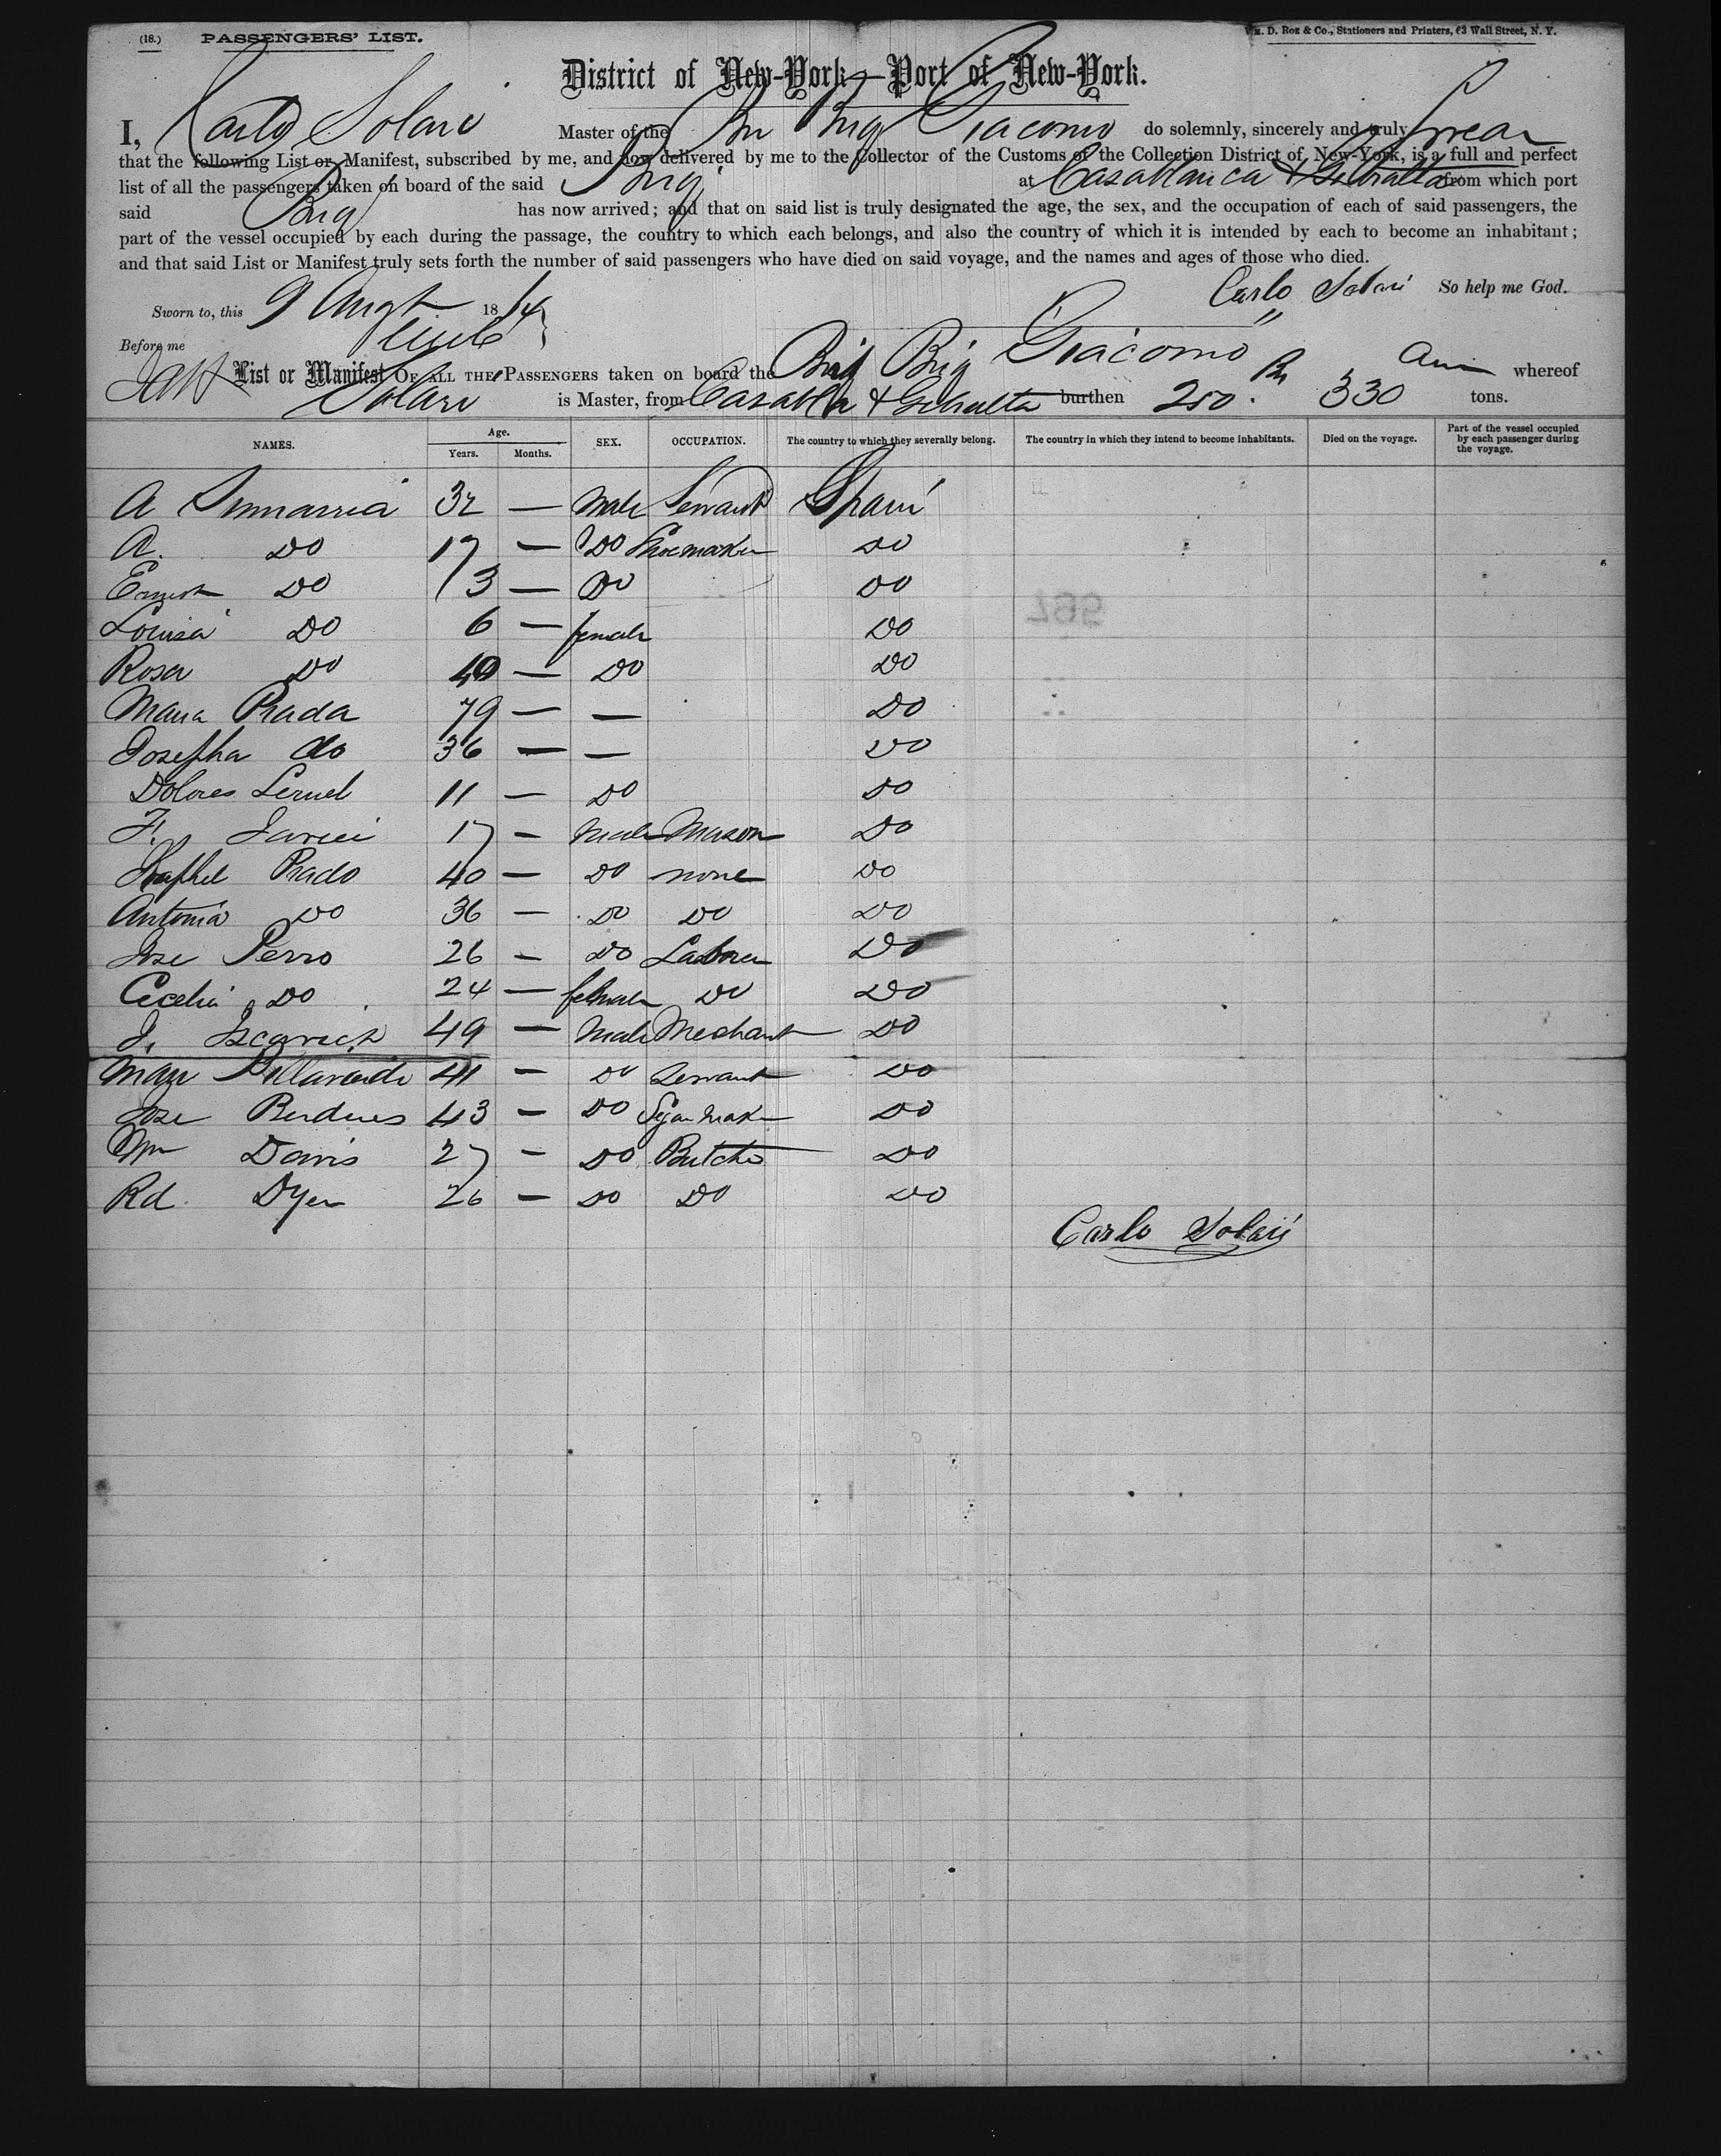 (18.) PASSENGERS' LIST. Wm. D. Roe & Co., Stationers and Printers, 63 Wall Street, N. Y.
District of New-York—Port of New-York.
I, Carlo Solari Master of the Brig Giacomo do solemnly, sincerely and truly swear
that the following List or Manifest, subscribed by me, and now delivered by me to the Collector of the Customs of the Collection District of New-York, is a full and perfect
list of all the passengers taken on board of the said Brig at Casablanca & Gibraltar from which port
said Brig has now arrived; and that on said list is truly designated the age, the sex, and the occupation of each of said passengers, the
part of the vessel occupied by each during the passage, the country to which each belongs, and also the country of which it is intended by each to become an inhabitant;
and that said List or Manifest truly sets forth the number of said passengers who have died on said voyage, and the names and ages of those who died.
Carlo Solari So help me God.
Sworn to, this 9 Augt 18
Before me
List or Manifest OF ALL THE PASSENGERS taken on board the Brig Giacomo whereof
Solari is Master, from Casabla & Gibralta burthen 250. 330 tons.
NAMES. Age. Years. Months. SEX. OCCUPATION. The country to which they severally belong. The country in which they intend to become inhabitants. Died on the voyage. Part of the vessel occupied by each passenger during the voyage.
A 32 — Male Servant Spain
A. DO 17 — DO Shoemaker DO
Ernest DO 13 — DO DO
Louisa DO 6 — female DO
Rosa DO 40 — DO DO
Maria Prada 79 — — DO
Josepha do 36 — — DO
Dolores 11 — DO DO
F. 17 — Male Mason DO
Raphel Prado 40 — DO none DO
Antonia DO 36 — DO DO DO
Jose Perro 26 — DO Laborer DO
Cecelia DO 24 — female DO DO
J. 49 — Male Mechant DO
41 — DO Servant DO
Jose 43 — DO Segar Maker DO
Wm Davis 27 — DO Butcher DO
Rd. Dyer 26 — DO DO DO
Carlo Solari